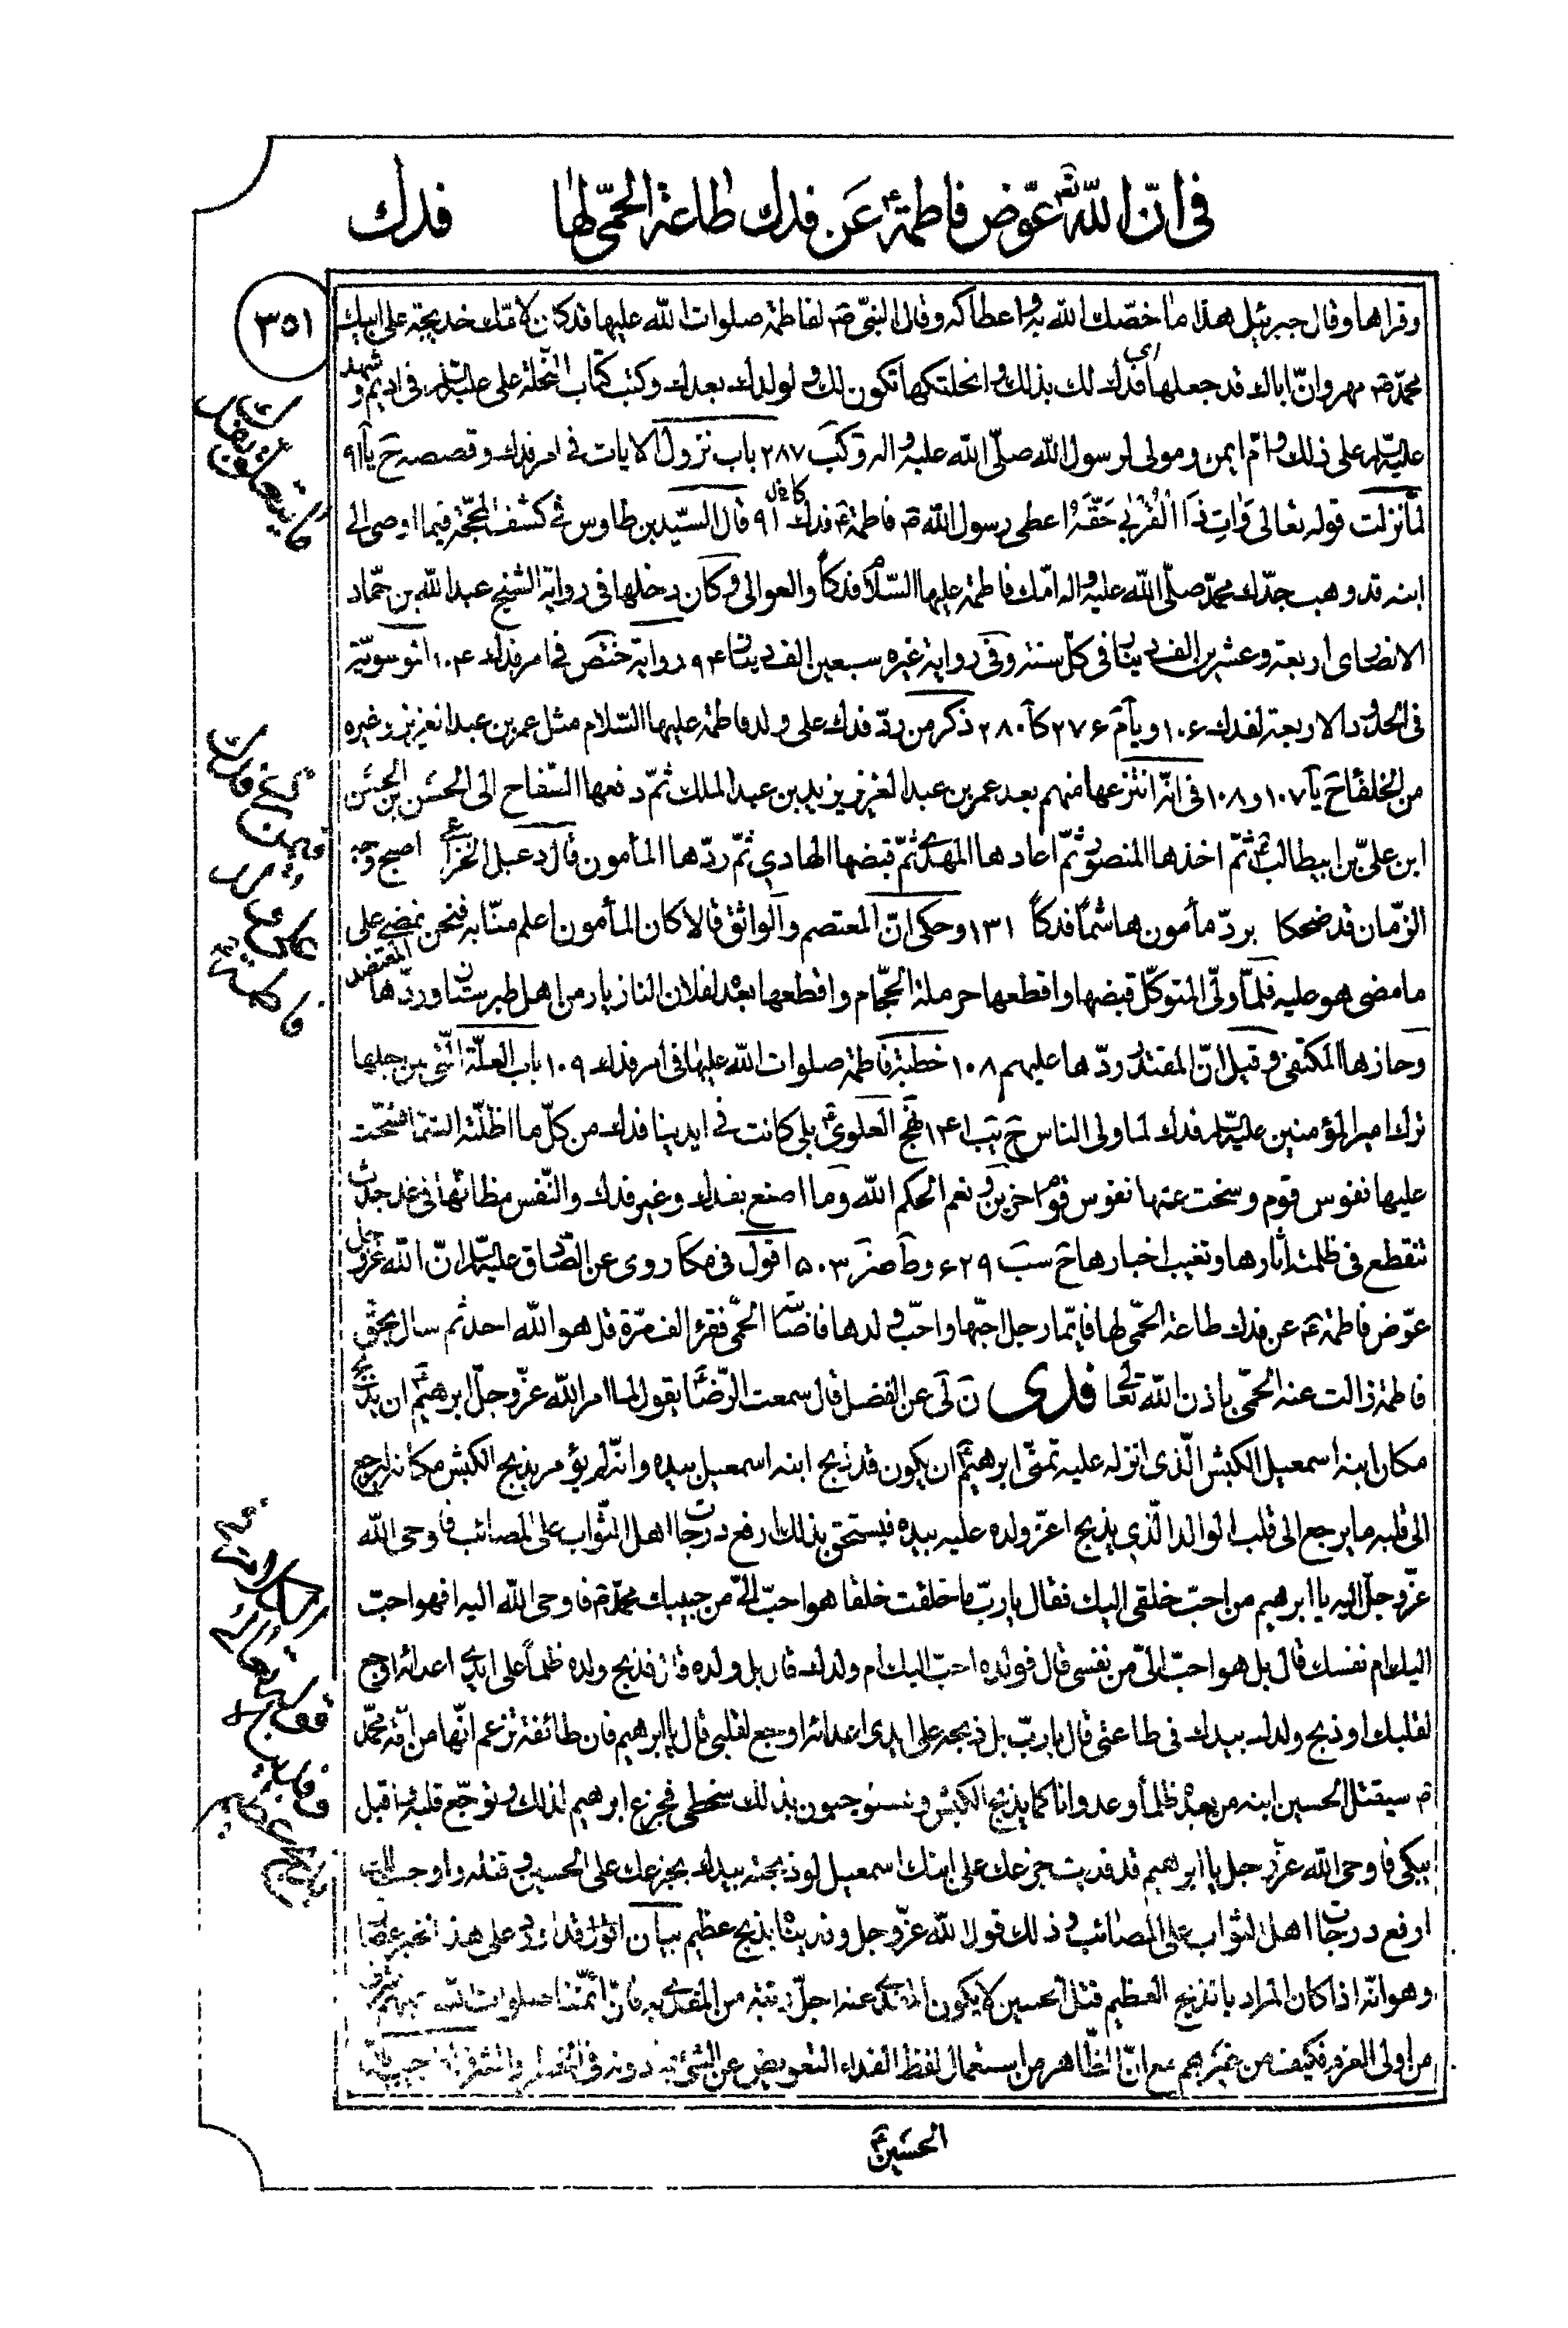 في انّ اللّه تع عوّض فاطمة ع عَن فدك طاعة الحمّى لها
فدك
٣٥١
وقراها وقال جبرئيل هذا ما خصّك اللّه به واعطاكه وقال النبيّ ص لفاطمة صلوات اللّه عليها قد كان لامّك خديجة على ابيك
محمّد ص مهر وانّ اباك قد جعلها اي فدك لك بذلك وانحلتكها تكون لك ولولدك بعدك وكتب كتاب النحلة على عليه السلم في اديم وشهد
عليه السلم على ذلك وامّ ايمن ومولى لرسول اللّه صلّى اللّه عليه واله وكب ٢٨٧ باب نزول الايات في امر فدك وقصصه ح يا ٩١
لمّا نزلت قوله تعالى وَاتِ ذَا الْقُرْبى حَقَّهُ اعطى رسول اللّه ص فاطمة ع فدك ٩١ قال السيّد بن طاوس في كشف المحجّة فيما اوصى الى
ابنه قد وهب جدّك محمّد صلّى اللّه عليه واله امّك فاطمة عليها السّلام فدكاً والعوالي وكان دخلها في رواية الشيخ عبد اللّه بن حمّاد
الانصاري اربعة وعشرين الف دينار في كلّ سنة وفي رواية غيره سبعين الف دينار ٩٤ رواية ختص في امر فدك ١٠٤
في الحدود الاربعة لفدك ١٠٦ ويا م ٢٧٦ كا ٢٨٠ ذكر من ردّ فدك على ولد فاطمة عليها السّلام مثل عمر بن عبد العزيز وغيره
من الخلفا ح يا ١٠٧ و ١٠٨ في انّه انتزعها منهم بعد عمر بن عبد العزيز يزيد بن عبد الملك ثمّ دفعها السّفاح الى الحسَن بن الحسَن
ابن عليّ بن ابيطالب ع ثمّ اخذها المنصور ثمّ اعادها المهدي ثمّ قبضها الهادي ثمّ ردّها المأمون قال دعبل الخزاعي اصبح وجه
الزّمان قد ضحكا بردّ مأمون هاشماً فدكاً ١٣١ وحكى انّ المعتصم والواثق قالا كان المأمون اعلم منّا به فنحن نمضي على
ما مضى هو عليه فلمّا ولّى المتوكّل قبضها واقطعها حرملة الحجّام واقطعها بعده لفلان النازيار من اهل طبرستان وردّها المعتضد
وحازها المكتفي وقيل انّ المقتدر ردّها عليهم ١٠٨ خطبة فاطمة صلوات اللّه عليها في امر فدك ١٠٩ باب العلّة الّتي من اجلها
ترك امير المؤمنين عليه السلم فدك لمّا ولى الناس ح يب ١٤١ نهج العلوي ع بلى كانت في ايدينا فدك من كلّ ما اظلّته السّماء فشحّت
عليها نفوس قوم وسخت عنها نفوس قوم اخرين ونعم الحكم اللّه وما اصنع بفدك وغير فدك والنّفس مظانّها في غد جدث
تنقطع في ظلمته اثارها وتغيب اخبارها ح سب ٦٢٩ وط صز ٥٠٣ اقول في مكا روى عن الصّادق عليه السلم انّ اللّه عزّ وجلّ
عوّض فاطمة ع عن فدك طاعة الحمّى لها فايّما رجل احبّها واحبّ ولدها فاصابته الحمّى فقرء الف مرّة قل هو اللّه احد ثم سال بحقّ
فاطمة زالت عنه الحمّى باذن اللّه تعالى فدى ن لى عن الفضل قال سمعت الرّضا ع يقول لما امر اللّه عزّ وجلّ ابرهيم ع ان يذبح
مكان ابنه اسمعيل الكبش الّذى انزله عليه تمنّى ابرهيم ع ان يكون قد ذبح ابنه اسمعيل بيده وانّه لم يؤمر بذبح الكبش مكانه ليرجع
الى قلبه ما يرجع الى قلب الوالد الّذي يذبح اعزّ ولده عليه بيده فيستحق بذلك ارفع درجات اهل الثّواب على المصائب فاوحى اللّه
عزّ وجلّ اليه يا ابرهيم من احبّ خلقى اليك فقال يا ربّ ما خلقت خلقا هو احبّ الىّ من حبيبك محمّد ص فاوحى اللّه اليه افهو احبّ
اليك ام نفسك قال بل هو احبّ الىّ من نفسى قال فولده احبّ اليك ام ولدك قال بل ولده قال فذبح ولده ظلماً على ايدي اعدائه اوجع
لقلبك او ذبح ولدك بيدك في طاعتى قال يا ربّ بل ذبحه على ايدى اعدائه اوجع لقلبى قال يا ابرهيم فان طائفة تزعم انّها من امّة محمّد
ص سيقتل الحسين ابنه من بعده ظلماً وعدوانا كما يذبح الكبش ويستوجبون بذلك سخطى فجزع ابرهيم لذلك وتوجّع قلبه واقبل
يبكى فاوحى اللّه عزّ وجل يا ابرهيم قد فديت جزعك على ابنك اسمعيل لو ذبحته بيدك بجزعك على الحسين وقتله واوجبت لك
ارفع درجات اهل الثواب على المصائب وذلك قول اللّه عزّ وجل وفديناه بذبح عظيم بيان اقول قد اورد على هذا الخبر اعضال
وهو انّه اذا كان المراد بالذبح العظيم قتل الحسين لا يكون المفدّى عنه اجلّ رتبة من المفدّى به فانّ ائمّتنا صلوات اللّه عليهم اشرف
من اولى العزم فكيف من غيرهم مع انّ الظّاهر من استعمال لفظ الفداء التعويض عن الشئ بما دونه في الخطر والشرف
الحسَين ع
ما يتعلّق بفدك
فيمن ردّ فدك على ولد فاطمة ع